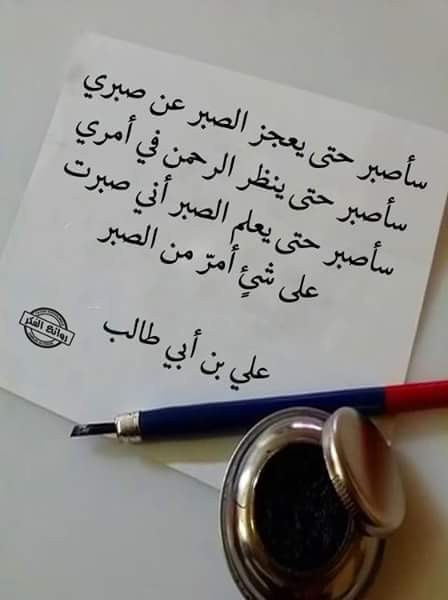 سأصبر حتى يعجز الصبر عن صبري
سأصبر حتى ينظر الرحمن في أمري
سأصبر حتى يعلم الصبر أني صبرت
على شئٍ أمرّ من الصبر
علي بن أبي طالب
روائع الفكر